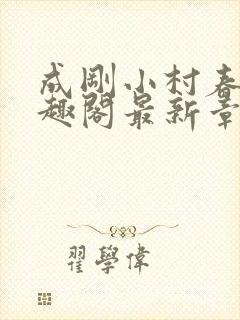 成剛小村春
趣閣最新章
翟學偉